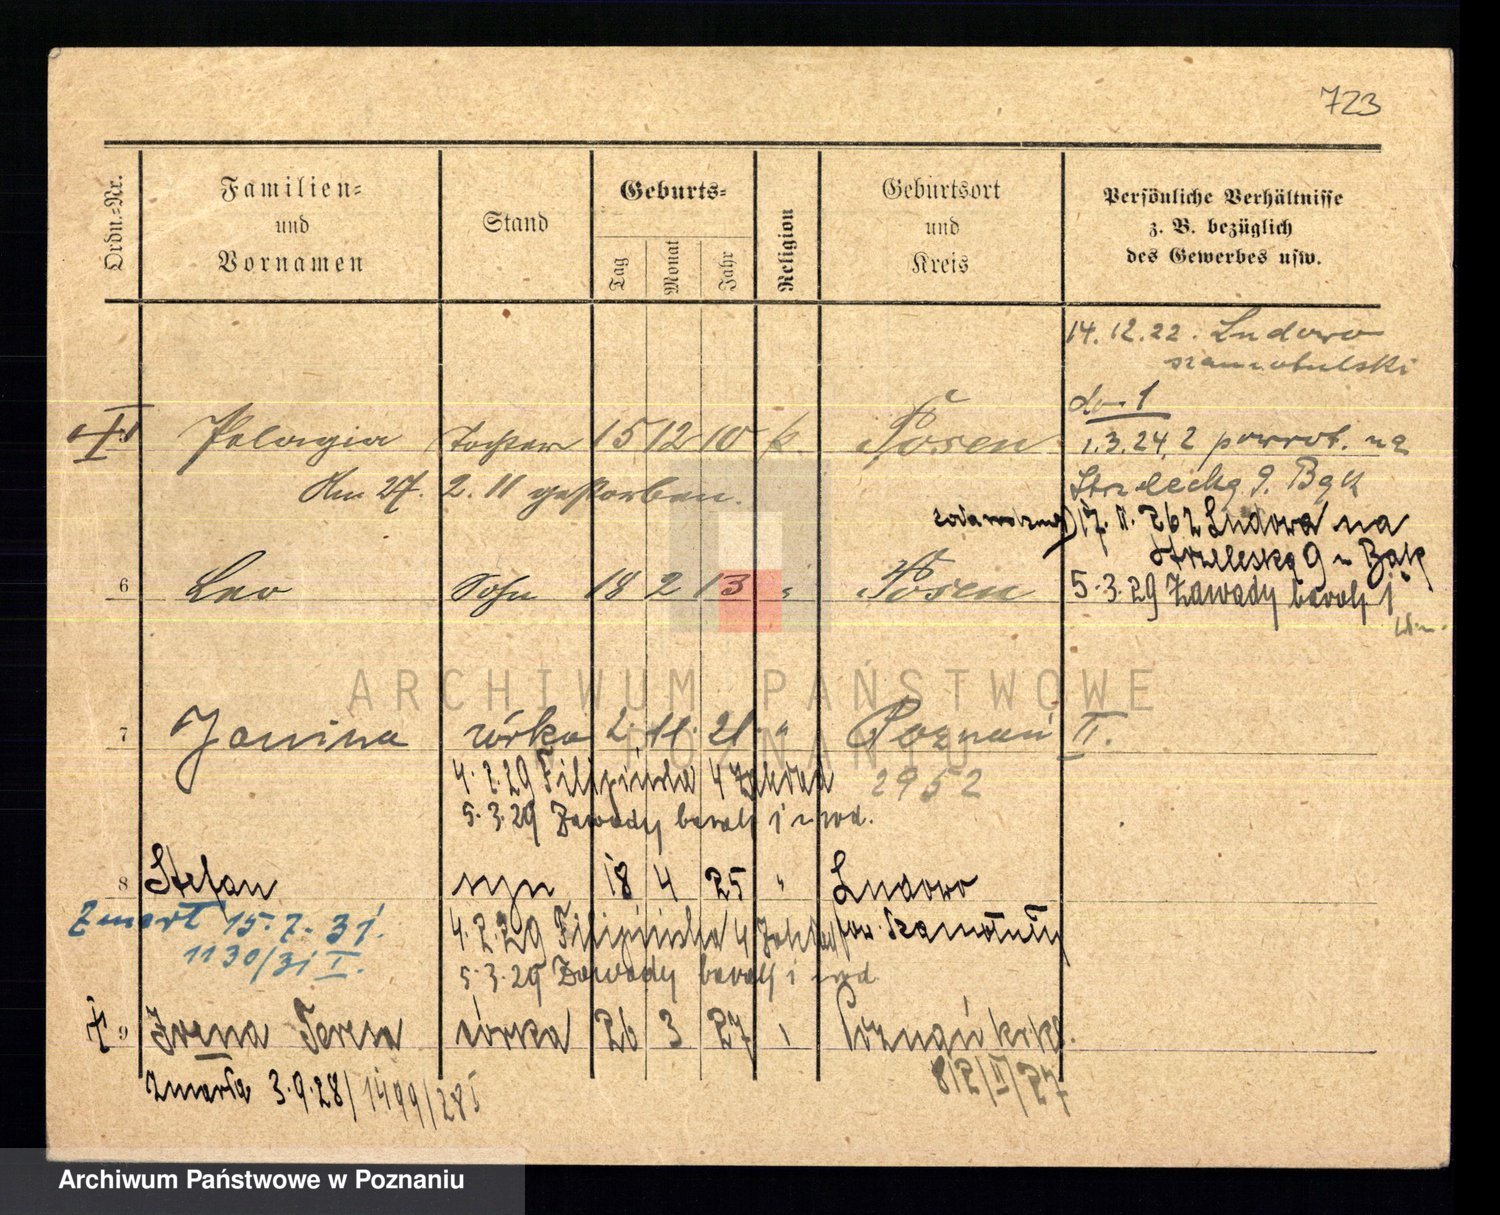 723
Ordn.-Nr.
Familien-
und
Vornamen
Stand
Geburts-
Tag
Monat
Jahr
Religion
Geburtsort
und
Kreis
Persönliche Verhältnisse
z. B. bezüglich
des Gewerbes usw.
14.12.22. Ludowo
szamotulski
do 1
Pelagia Tochter 15 12 10 k. Posen
1.3.24, z powrot. na
Am 27. 2. 11 gestorben.
Strzelecką 9. Bąk
17. II. 26 z Ludowa na
Strzelecką 9 u Bąk
6 Leo Sohn 18 2 13 " Posen
5.3.29 Zawady barak 1
7 Janina córka 2. 11. 21. " Poznań II.
2952
4.2.29 Filipińska 4
5.3.29 Zawady barak 1 u rod.
8 Stefan syn 18 4 25 " Ludowo
pow. Szamotuły
Zmarł 15.7.31.
4.2.29 Filipińska 4
1130/31 I.
5.3.29 Zawady barak 1 u rod
9 Irena Teresa córka 26 3 27 " Poznań
812/II/27
zmarła 3.9.28/1499/28 I
ARCHIWUM PAŃSTWOWE
W POZNANIU
Archiwum Państwowe w Poznaniu